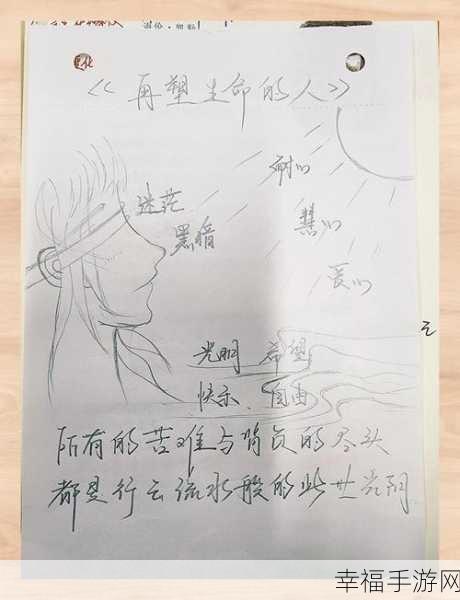 《再塑生命的人》
耐心
迷茫
慧心
黑暗
爱心
光明 希望
快乐 自由
所有的苦难与背负的尽头
都是行云流水般的此世光阴
幸福手游网